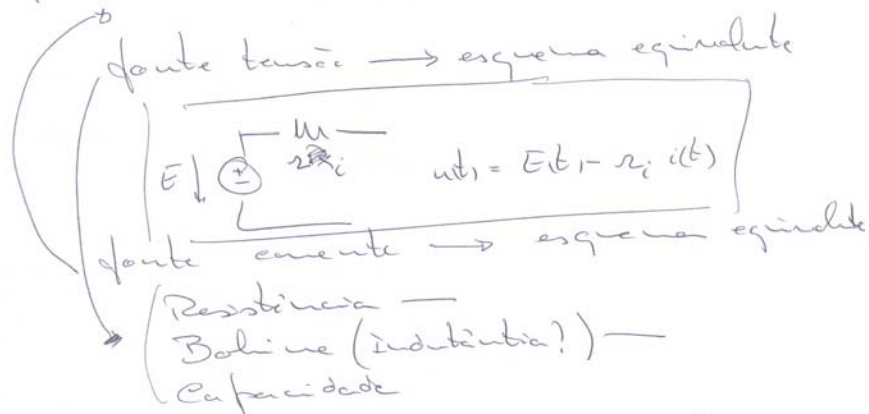 fonte tensão → esquema equivalente
E ↓ ± r_i u(t) = E(t) - r_i i(t)
fonte corrente → esquema equivalente
Resistência —
Bobine (indutância?) —
Capacidade